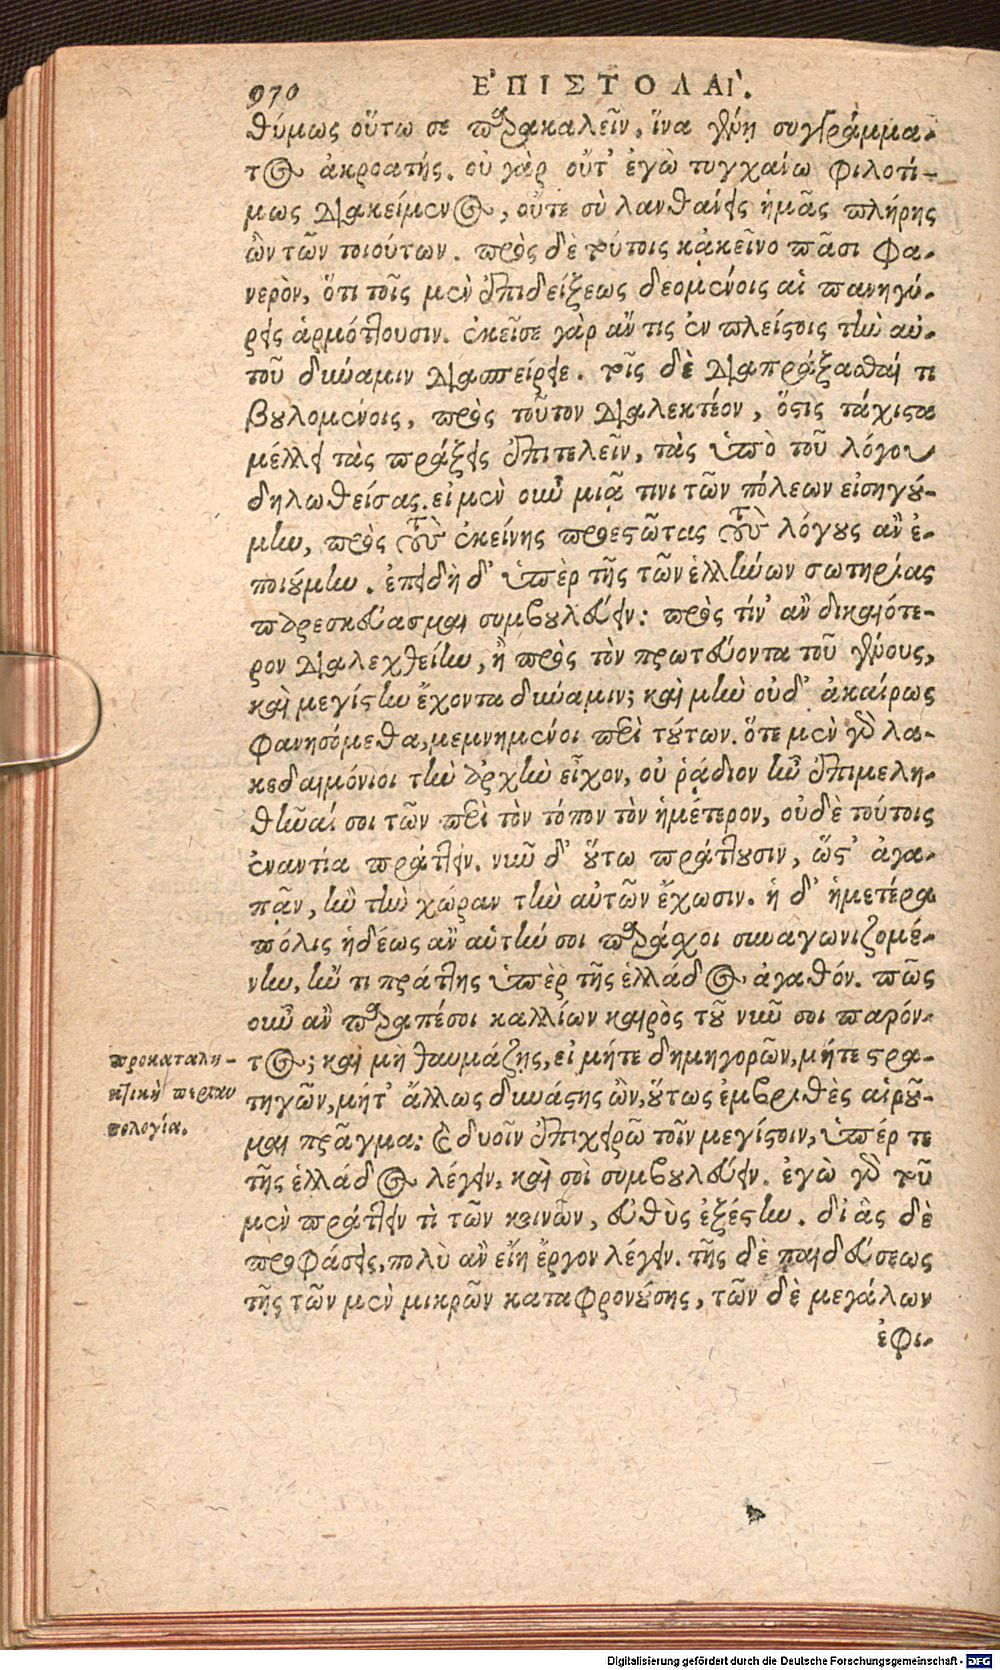 970 ΕΠΙΣΤΟΛΑΙ.
θύμως οὕτω σε παρακαλεῖν, ἵνα γένῃ συγγράμμα-
τος ἀκροατής. οὐ γὰρ οὔτ' ἐγὼ τυγχάνω φιλοτί-
μως διακείμενος, οὔτε σὺ λανθάνεις ἡμᾶς πλήρης
ὢν τῶν τοιούτων. πρὸς δὲ τούτοις κἀκεῖνο πᾶσι φα-
νερὸν, ὅτι τοῖς μὲν ἐπιδείξεως δεομένοις αἱ πανηγύ-
ρεις ἁρμόττουσιν. ἐκεῖσε γὰρ ἄν τις ἐν πλείστοις τὴν αὑ-
τοῦ δύναμιν διασπείρειε. τοῖς δὲ διαπράξασθαί τι
βουλομένοις, πρὸς τοῦτον διαλεκτέον, ὅστις τάχιστα
μέλλει τὰς πράξεις ἐπιτελεῖν, τὰς ὑπὸ τοῦ λόγου
δηλωθείσας. εἰ μὲν οὖν μιᾷ τινι τῶν πόλεων εἰσηγού-
μην, πρὸς τοὺς ἐκείνης προεστῶτας τοὺς λόγους ἂν ἐ-
ποιούμην. ἐπειδὴ δ' ὑπὲρ τῆς τῶν ἑλλήνων σωτηρίας
παρεσκεύασμαι συμβουλεύειν: πρὸς τίν' ἂν δικαιότε-
ρον διαλεχθείην, ἢ πρὸς τὸν πρωτεύοντα τοῦ γένους,
καὶ μεγίστην ἔχοντα δύναμιν; καὶ μὴν οὐδ' ἀκαίρως
φανησόμεθα, μεμνημένοι περὶ τούτων. ὅτε μὲν γὰρ λα-
κεδαιμόνιοι τὴν ἀρχὴν εἶχον, οὐ ῥᾴδιον ἦν ἐπιμελη-
θῆναί σοι τῶν περὶ τὸν τόπον τὸν ἡμέτερον, οὐδὲ τούτοις
ἐναντία πράττειν. νῦν δ' οὕτω πράττουσιν, ὥστ' ἀγα-
πᾶν, ἢν τὴν χώραν τὴν αὑτῶν ἔχωσιν. ἡ δ' ἡμετέρα
πόλις ἡδέως ἂν αὑτήν σοι παράσχοι συναγωνιζομέ-
νην, ἤν τι πράττῃς ὑπὲρ τῆς ἑλλάδος ἀγαθόν. πῶς
οὖν ἂν παραπέσοι καλλίων καιρὸς τοῦ νῦν σοι παρόν-
τος; καὶ μὴ θαυμάζῃς, εἰ μήτε δημηγορῶν, μήτε στρα-
τηγῶν, μήτ' ἄλλως δυνάστης ὢν, οὕτως ἐμβριθὲς αἱροῦ-
μαι πρᾶγμα: καὶ δυοῖν ἐπιχειρῶ τοῖν μεγίστοιν, ὑπέρ τε
τῆς ἑλλάδος λέγειν, καὶ σοὶ συμβουλεύειν. ἐγὼ γὰρ τοῦ
μὲν πράττειν τὶ τῶν κοινῶν, εὐθὺς ἐξέστην. δι' ἃς δὲ
προφάσεις, πολὺ ἂν εἴη ἔργον λέγειν. τῆς δὲ παιδεύσεως
τῆς τῶν μὲν μικρῶν καταφρονούσης, τῶν δὲ μεγάλων
ἐφι-
προκαταλη-
πτικὴ
πολογία.
Digitalisierung gefördert durch die Deutsche Forschungsgemeinschaft - DFG